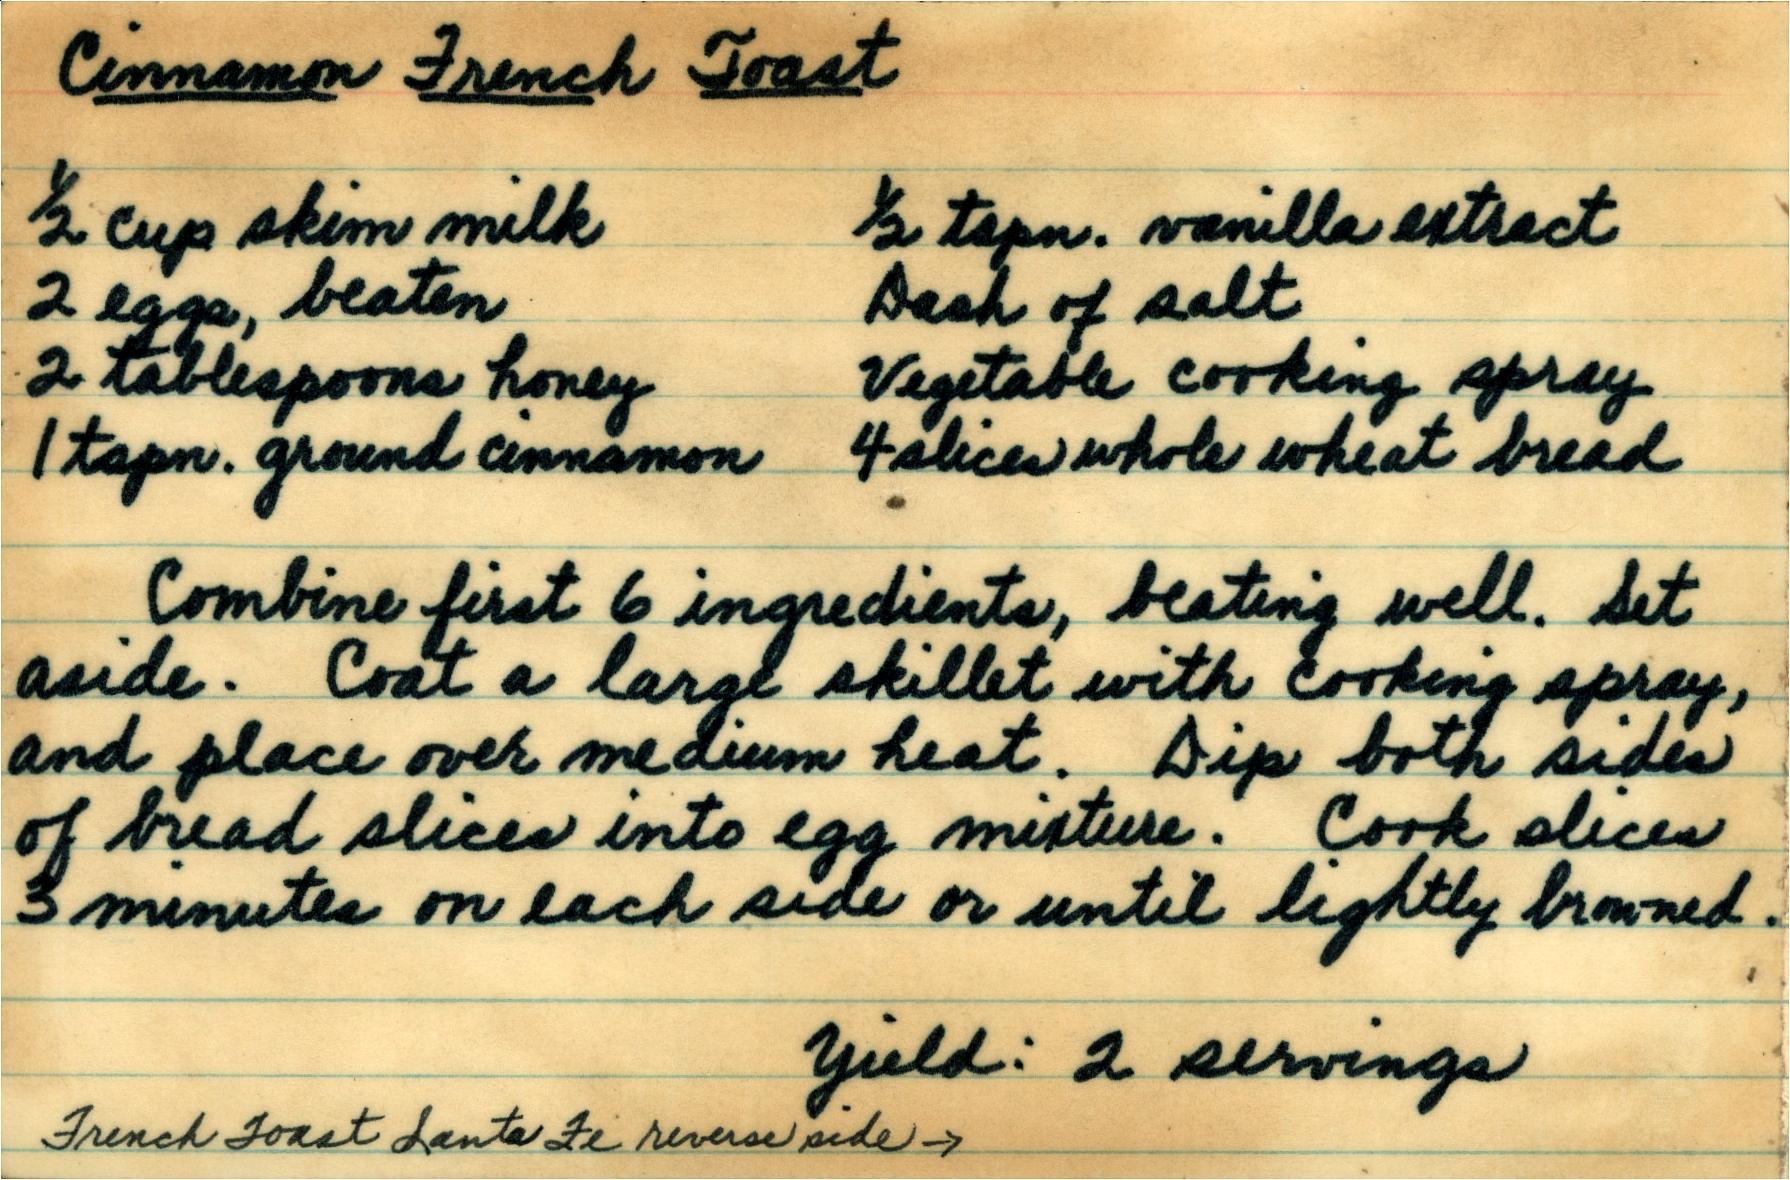 Cinnamon French Toast
½ cup skim milk
2 eggs, beaten
2 tablespoons honey
1 tspn. ground cinnamon
½ tspn. vanilla extract
Dash of salt
Vegetable cooking spray
4 slices whole wheat bread
Combine first 6 ingredients, beating well. Set
aside. Coat a large skillet with cooking spray,
and place over medium heat. Dip both sides
of bread slices into egg mixture. Cook slices
3 minutes on each side or until lightly browned.
Yield: 2 servings
French Toast Santa Fe reverse side →